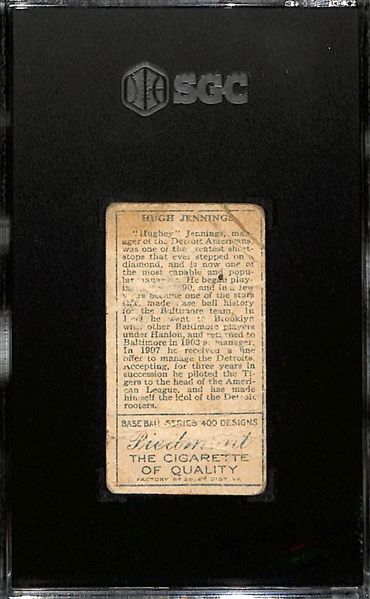 SGC
HUGH JENNINGS
"Hughey" Jennings, man-
ager of the Detroit Americans,
was one of the greatest short-
stops that ever stepped on a
diamond, and is now one of
the most capable and popu-
lar managers. He began play-
in 90, and in a few
years became one of the stars
that made base ball history
for the Baltimore team. In
he went to Brooklyn
with other Baltimore players
under Hanlon, and returned to
Baltimore in 1903 as manager.
In 1907 he received a fine
offer to manage the Detroits.
Accepting, for three years in
succession he piloted the Ti-
gers to the head of the Ameri-
can League, and has made
himself the idol of the Detroit
rooters.
BASE BALL SERIES 400 DESIGNS
Piedmont
THE CIGARETTE
OF QUALITY
FACTORY No 25, 2d DIST. VA.